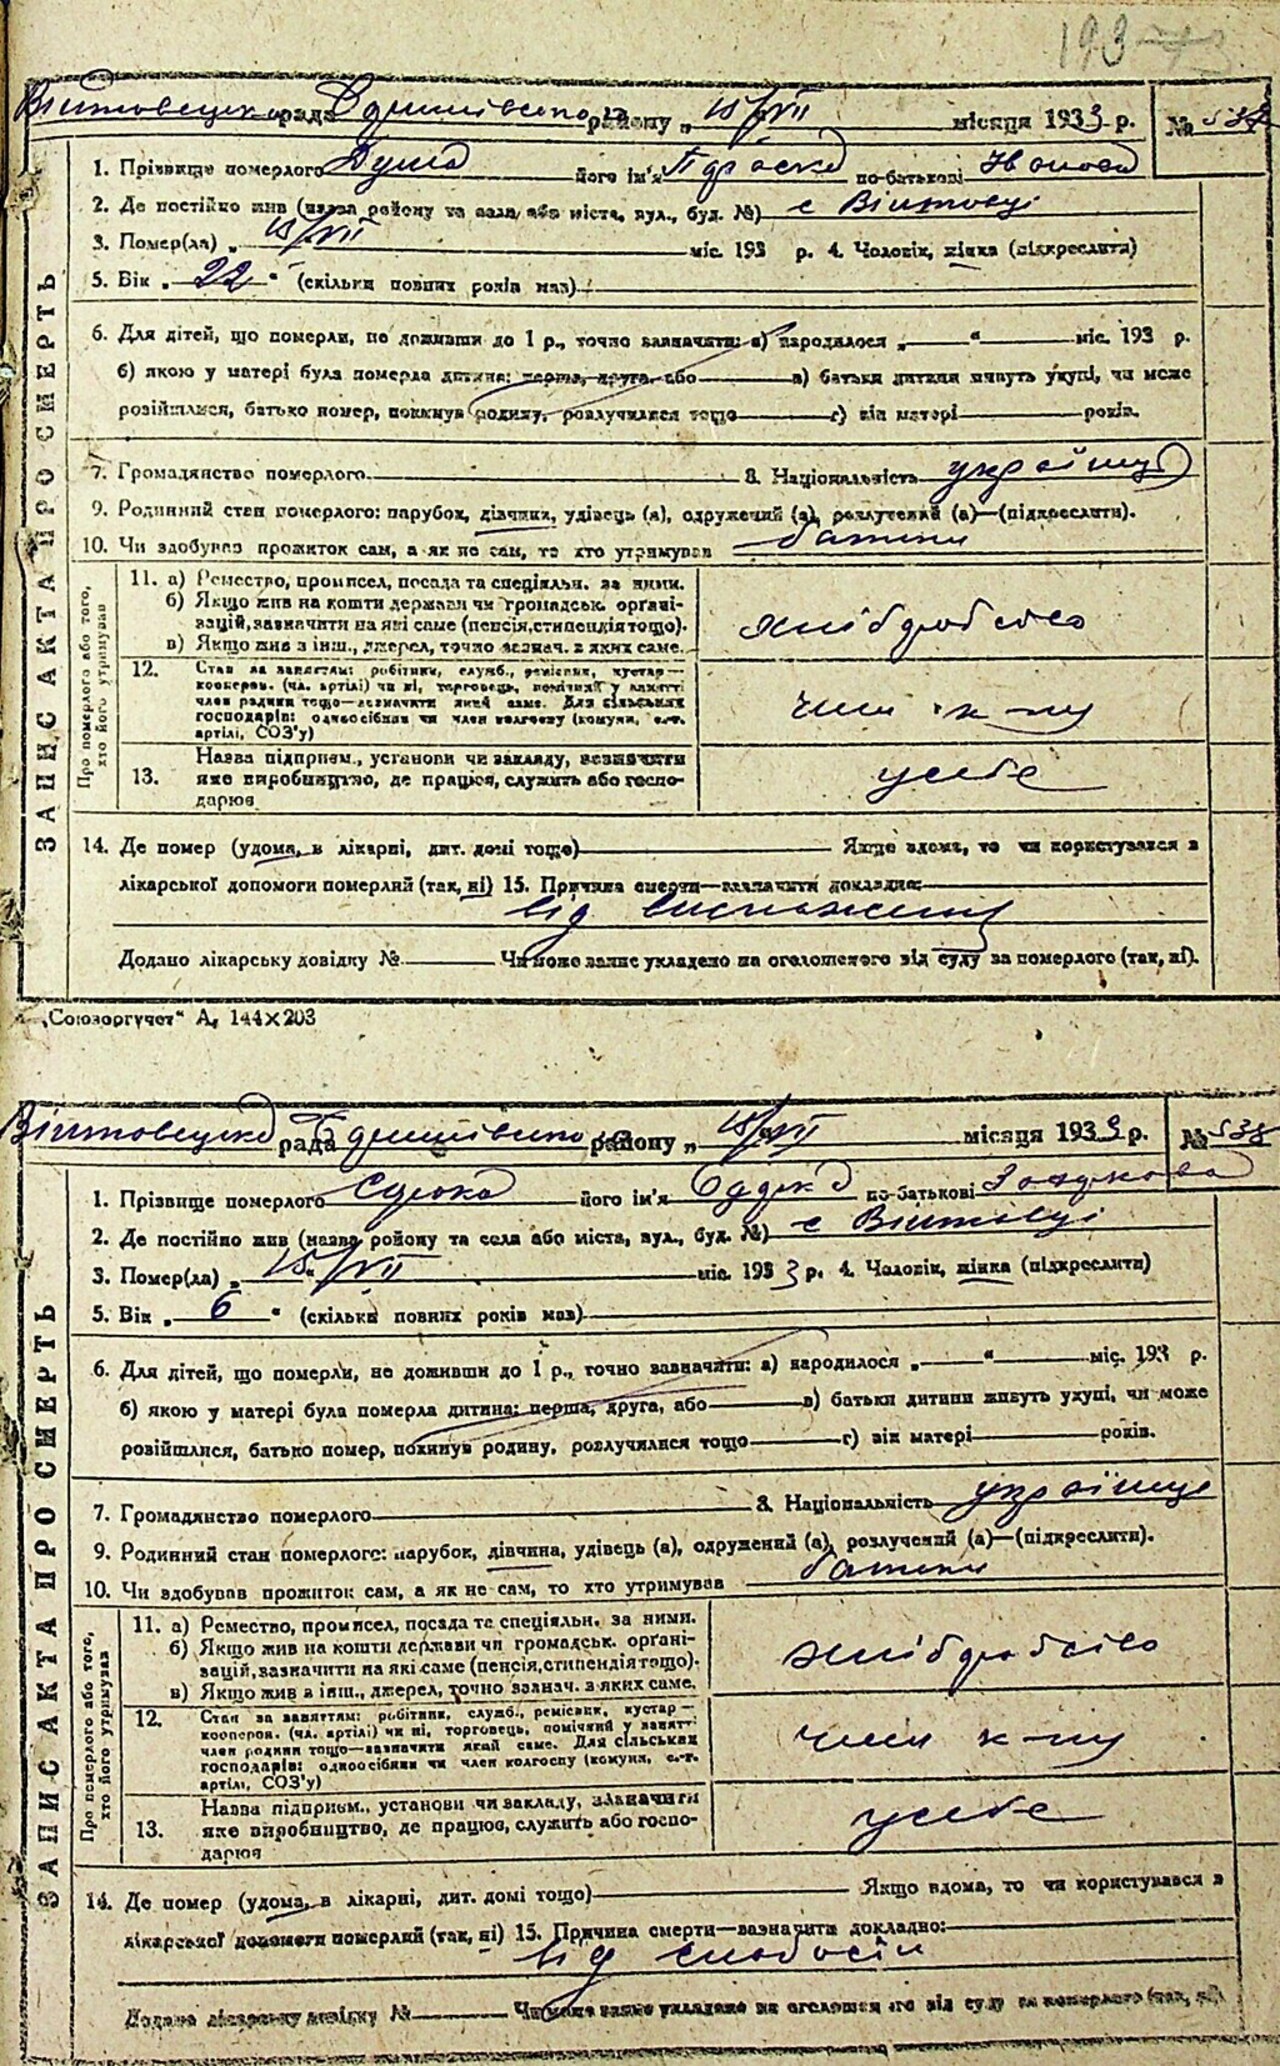 193
Вітовецька рада району „15/VII місяця 1933 р. №
1. Прізвище померлого Душа його ім'я Параска по-батькові
2. Де постійно жив (назва району та села або міста, вул., буд. №) с Вітовці
3. Помер(ла) „15/VII міс. 193 р. 4. Чоловік, жінка (підкреслити)
5. Вік „22“ (скільки повних років мав)
6. Для дітей, що померли, не доживши до 1 р., точно зазначити: а) народилося „ “ міс. 193 р.
б) якою у матері була померла дитина: перша, друга, або в) батьки дитини живуть укупі, чи може
розійшлися, батько помер, покинув родину, розлучилися тощо г) вік матері років.
7. Громадянство померлого 8. Національність українці
9. Родинний стан померлого: парубок, дівчина, удівець (а), одружений (а), розлучений (а)—(підкреслити).
10. Чи здобував прожиток сам, а як не сам, то хто утримував батьки
ЗАПИС АКТА ПРО СМЕРТЬ
Про померлого або того, хто його утримував
11. а) Ремество, промисел, посада та спеціяльн. за ними.
б) Якщо жив на кошти держави чи громадськ. органі-
зацій, зазначити на які саме (пенсія, стипендія тощо).
в) Якщо жив з інш., джерел, точно зазнач. з яких саме.
хліборобство
12. Стан за заняттям: робітник, служб., ремісник, кустар—
кооперов. (чл. артілі) чи ні, торговець, помічний у занятті
член родини тощо—зазначити який саме. Для сільських
господарів: одноосібник чи член колгоспу (комуни, с.-г.
артілі, СОЗ'у)
член к-пу
13. Назва підприєм., установи чи закладу, зазначити
яке виробництво, де працює, служить або госпо-
дарює
у себе
14. Де помер (удома, в лікарні, дит. домі тощо) Якщо вдома, то чи користувався в
лікарської допомоги померлий (так, ні) 15. Причина смерти—зазначити докладно:
від виснаження
Додано лікарську довідку № Чи може запис укладено на оголошеного від суду за померлого (так, ні).
„Союзоргучет“ А, 144×203
Вітовецька рада району „15/VII місяця 1933 р. № 538
1. Прізвище померлого його ім'я по-батькові
2. Де постійно жив (назва району та села або міста, вул., буд. №) с Вітовці
3. Помер(ла) „15/VII міс. 1933 р. 4. Чоловік, жінка (підкреслити)
5. Вік „6“ (скільки повних років мав)
6. Для дітей, що померли, не доживши до 1 р., точно зазначити: а) народилося „ “ міс. 193 р.
б) якою у матері була померла дитина: перша, друга, або в) батьки дитини живуть укупі, чи може
розійшлися, батько помер, покинув родину, розлучилися тощо г) вік матері років.
7. Громадянство померлого 8. Національність українці
9. Родинний стан померлого: парубок, дівчина, удівець (а), одружений (а), розлучений (а)—(підкреслити).
10. Чи здобував прожиток сам, а як не сам, то хто утримував батьки
ЗАПИС АКТА ПРО СМЕРТЬ
Про померлого або того, хто його утримував
11. а) Ремество, промисел, посада та спеціяльн. за ними.
б) Якщо жив на кошти держави чи громадськ. органі-
зацій, зазначити на які саме (пенсія, стипендія тощо).
в) Якщо жив з інш., джерел, точно зазнач. з яких саме.
хліборобство
12. Стан за заняттям: робітник, служб., ремісник, кустар—
кооперов. (чл. артілі) чи ні, торговець, помічний у занятті
член родини тощо—зазначити який саме. Для сільських
господарів: одноосібник чи член колгоспу (комуни, с.-г.
артілі, СОЗ'у)
член к-пу
13. Назва підприєм., установи чи закладу, зазначити
яке виробництво, де працює, служить або госпо-
дарює
у себе
14. Де помер (удома, в лікарні, дит. домі тощо) Якщо вдома, то чи користувався в
лікарської допомоги померлий (так, ні) 15. Причина смерти—зазначити докладно:
від слабости
Додано лікарську довідку № Чи може запис укладено на оголошеного від суду за померлого (так, ні).